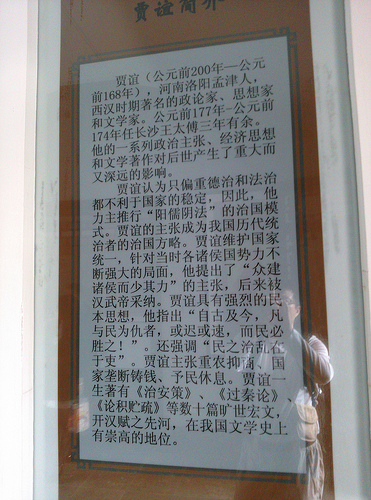 贾谊简介
贾谊（公元前200年—公元
前168年），河南洛阳孟津人，
西汉时期著名的政论家、思想家
和文学家。公元前177年-公元前
174年任长沙王太傅三年有余。
他的一系列政治主张、经济思想
和文学著作对后世产生了重大而
又深远的影响。
贾谊认为只偏重德治和法治
都不利于国家的稳定，因此，他
力主推行“阳儒阴法”的治国模
式。贾谊的主张成为我国历代统
治者的治国方略。贾谊维护国家
统一，针对当时各诸侯国势力不
断强大的局面，他提出了“众建
诸侯而少其力”的主张，后来被
汉武帝采纳。贾谊具有强烈的民
本思想，他指出“自古及今，凡
与民为仇者，或迟或速，而民必
胜之！”。还强调“民之治乱在
于吏”。贾谊主张重农抑商，国
家垄断铸钱、予民休息。贾谊一
生著有《治安策》、《过秦论》、
《论积贮疏》等数十篇旷世宏文，
开汉赋之先河，在我国文学史上
有崇高的地位。